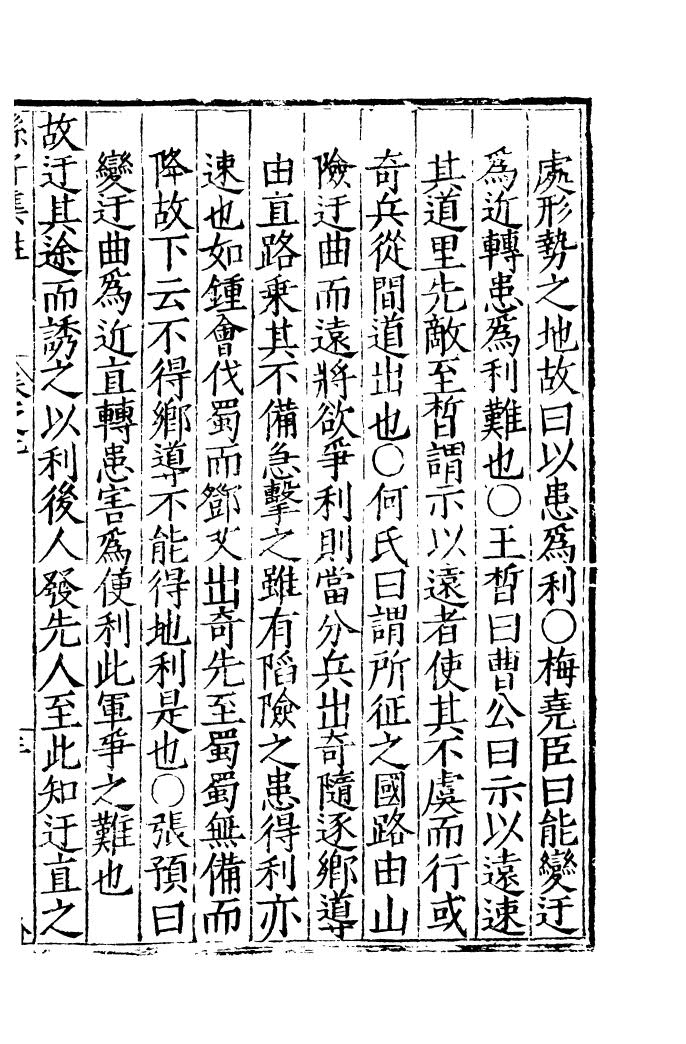 處形勢之地故曰以患爲利○梅堯臣曰能變迂
爲近轉患爲利難也○王晳曰曹公曰示以遠速
其道里先敵至晳謂示以遠者使其不虞而行或
奇兵從間道出也○何氏曰謂所征之國路由山
險迂曲而遠將欲爭利則當分兵出奇隨逐鄉導
由直路乗其不備急擊之雖有陷險之患得利亦
速也如鍾會伐蜀而鄧艾出奇先至蜀蜀無備而
降故下云不得鄉導不能得地利是也○張預曰
變迂曲爲近直轉患害爲便利此軍爭之難也
故迂其途而誘之以利後人發先人至此知迂直之